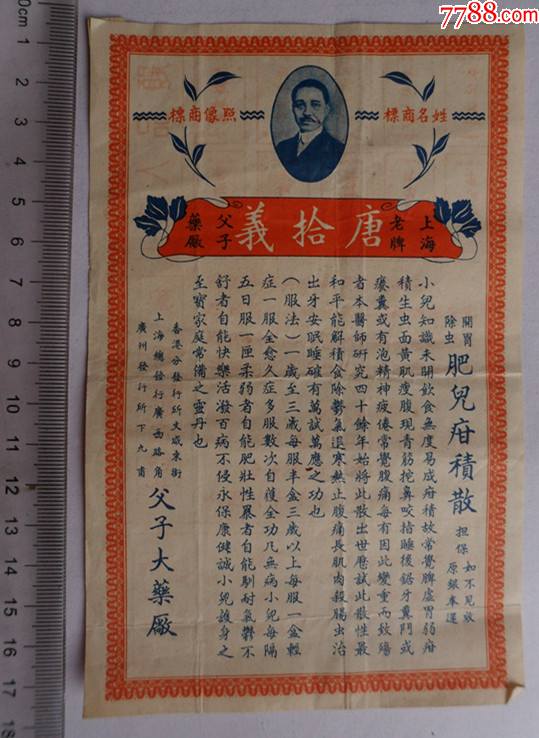 7788.com
姓名商標
照像商標
上海老牌
唐拾義
父子藥廠
開胃除虫
肥兒疳積散
担保如不見效原銀奉還
小兒知識未開飲食無度易成疳積故常覺脾虛胃弱疳
積生虫面黃肌瘦腹現青筋挖鼻咬指睡後鋸牙糞門或
癢囊或有泡精神疲倦常覺腹痛每有因此變重而致殤
者本醫師研究四十餘年始將此散出世歷試此散性最
和平能解積食除鬱氣退寒熱止腹痛長肌肉殺腸虫治
出牙安眠睡確有萬試萬應之功也
(服法)一歲至三歲每服半盒三歲以上每服一盒輕
症一服全愈久症多服數次自獲全功凡無病小兒每隔
五日服一匣柔弱者自能肥壯性暴者自能馴耐氣鬱不
舒者自能快樂活潑百病不侵永保康健誠小兒護身之
至寶家庭常備之靈丹也
香港分發行所文咸東街
上海總發行廣西路角
廣州發行所下九甫
父子大藥廠
0cm
1
2
3
4
5
6
7
8
9
10
11
12
13
14
15
16
17
18